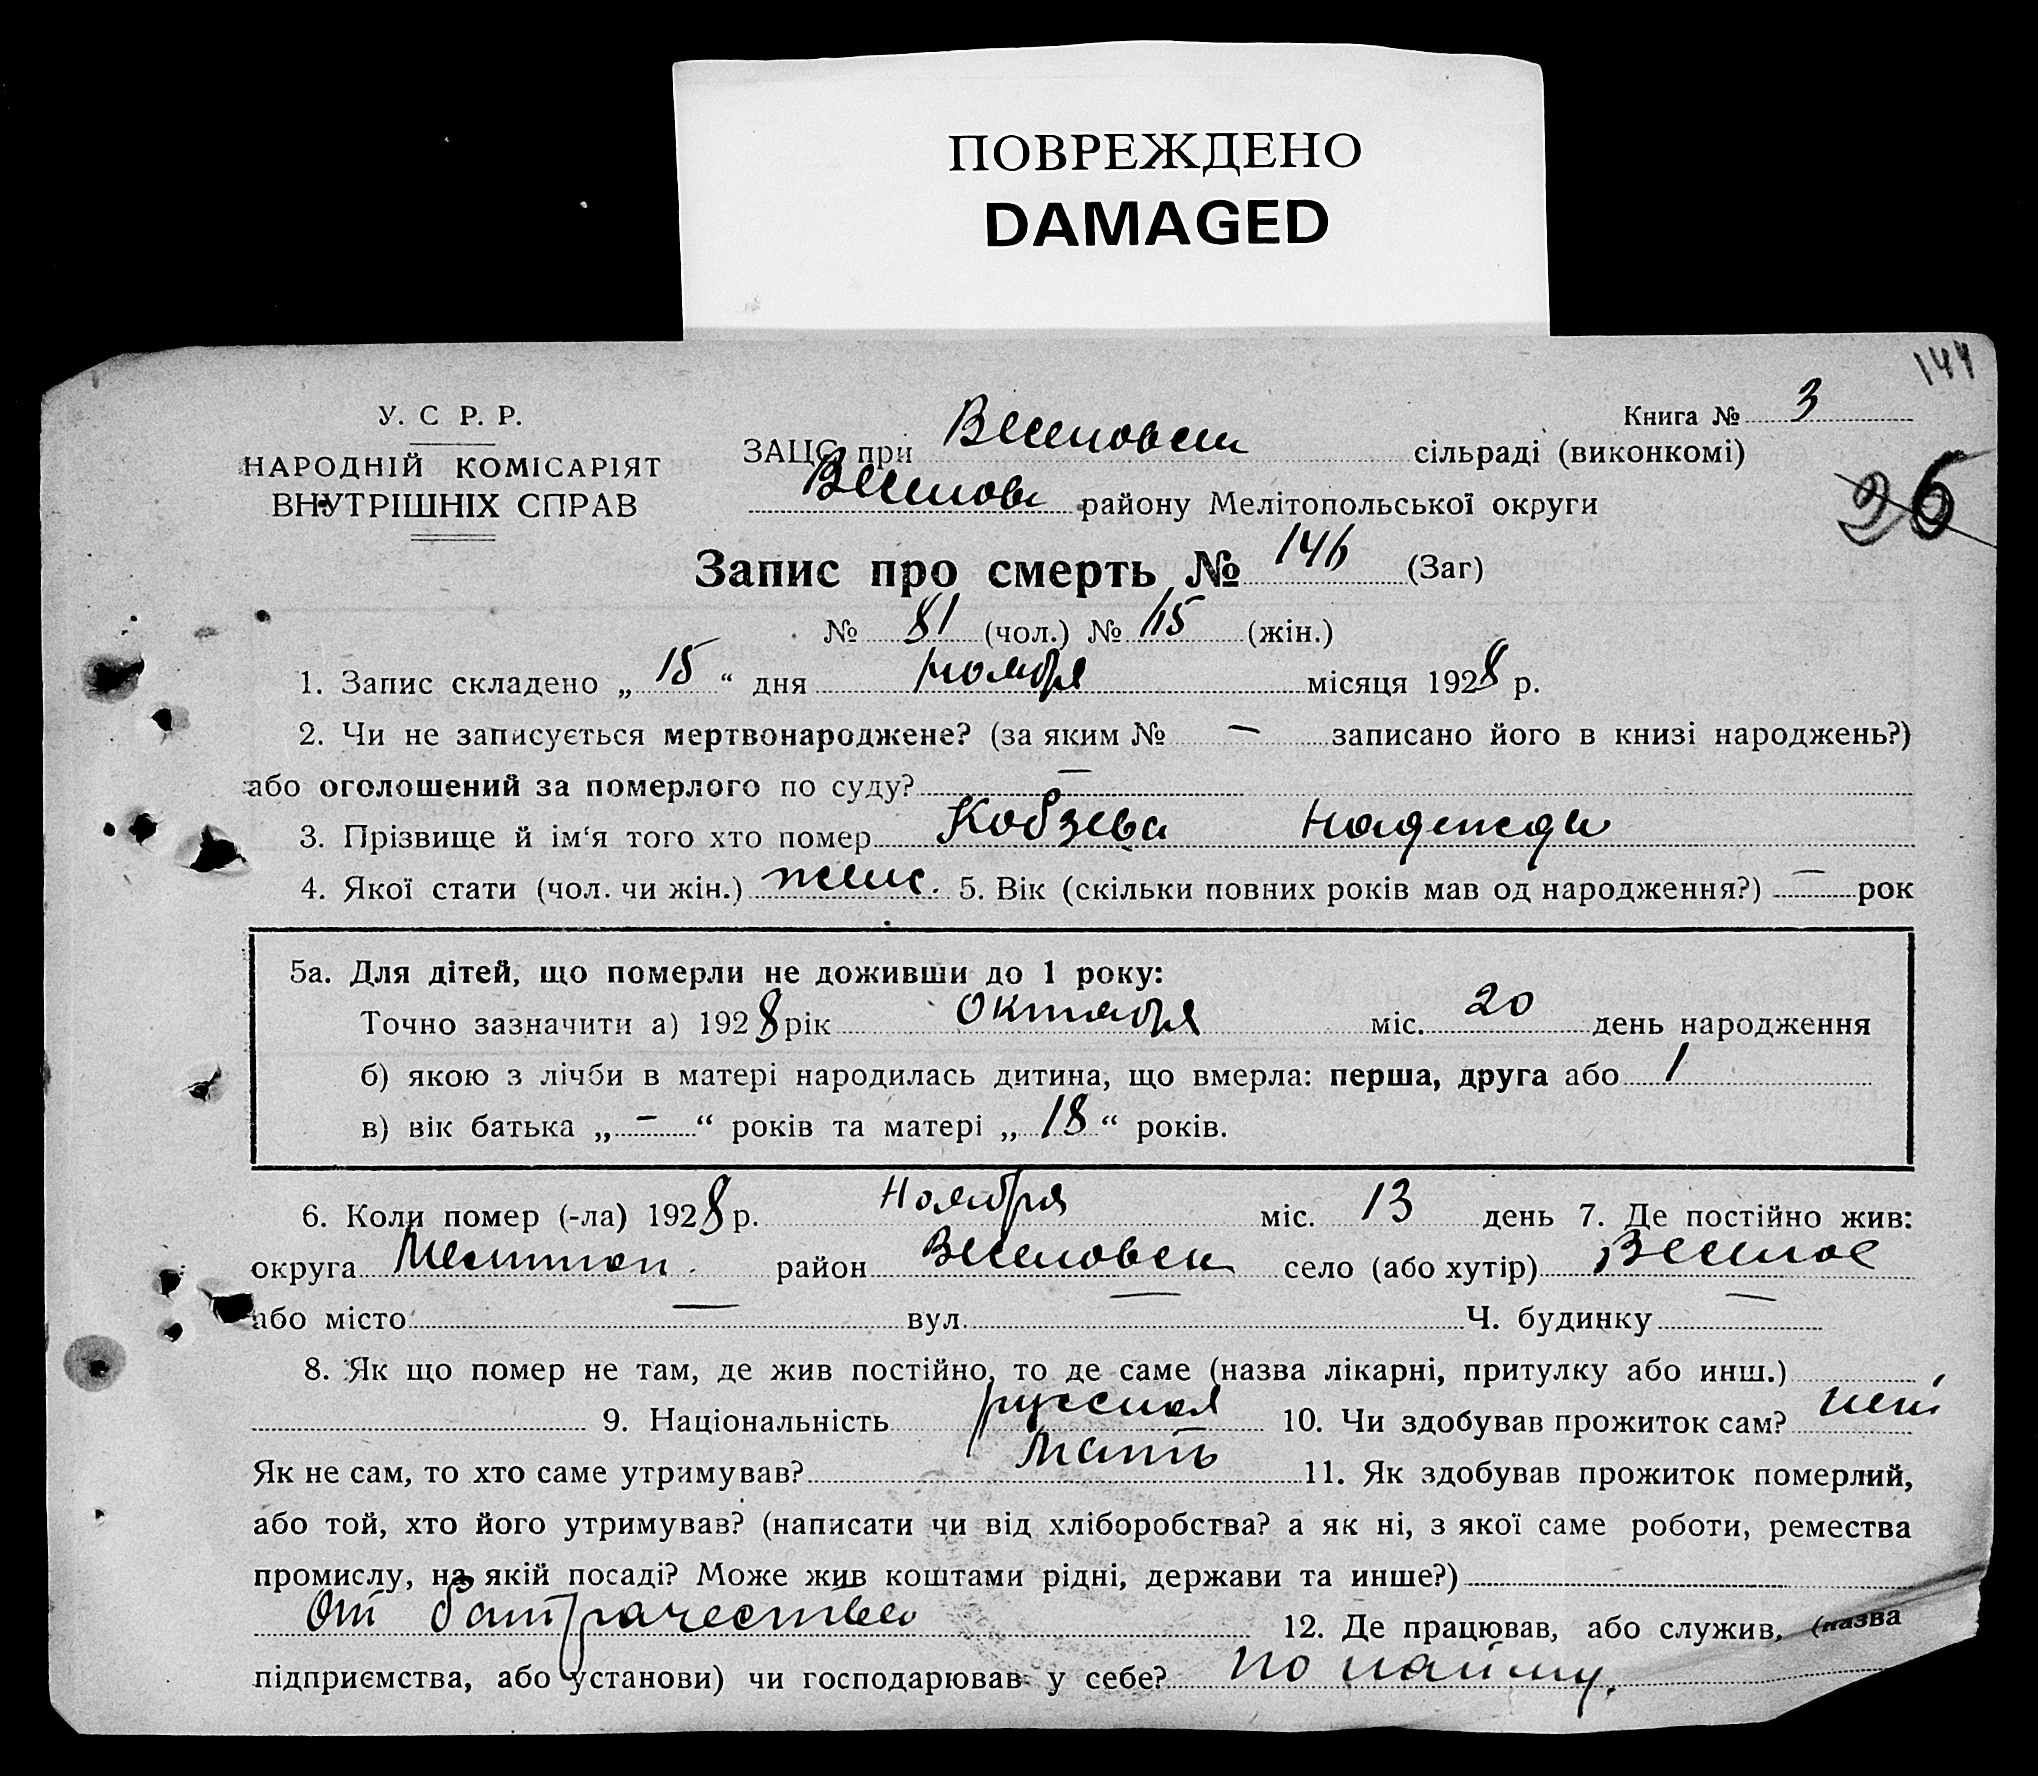 ПОВРЕЖДЕНО
DAMAGED
144
У. С Р. Р.
Книга № 3
НАРОДНІЙ КОМІСАРІЯТ
ВНУТРІШНІХ СПРАВ
ЗАЦС при Веселовск сільраді (виконкомі)
Веселовс району Мелітопольської округи
Запис про смерть № 146 (Заг)
№ 81 (чол.) № (жін.)
1. Запис складено „ 15 “ дня ноября місяця 1928 р.
2. Чи не записується мертвонароджене? (за яким № — записано його в книзі народжень?)
або оголошений за померлого по суду? —
3. Прізвище й ім‘я того хто помер Кобзева Надежда
4. Якої стати (чол. чи жін.) женс. 5. Вік (скільки повних років мав од народження?) — рок
5а. Для дітей, що померли не доживши до 1 року:
Точно зазначити а) 1928 рік Октября міс. 20 день народження
б) якою з лічби в матері народилась дитина, що вмерла: перша, друга або 1
в) вік батька „ — “ років та матері „ 18 “ років.
6. Коли помер (-ла) 1928 р. Ноября міс. 13 день 7. Де постійно жив:
округа Мелитоп. район Веселовск село (або хутір) Веселое
або місто — вул. — Ч. будинку —
8. Як що помер не там, де жив постійно, то де саме (назва лікарні, притулку або инш.)
9. Національність русская 10. Чи здобував прожиток сам? нет
Як не сам, то хто саме утримував? Мать 11. Як здобував прожиток померлий,
або той, хто його утримував? (написати чи від хліборобства? а як ні, з якої саме роботи, ремества
промислу, на якій посаді? Може жив коштами рідні, держави та инше?)
От батрачества 12. Де працював, або служив, (назва
підприємства, або установи) чи господарював у себе? по найму.